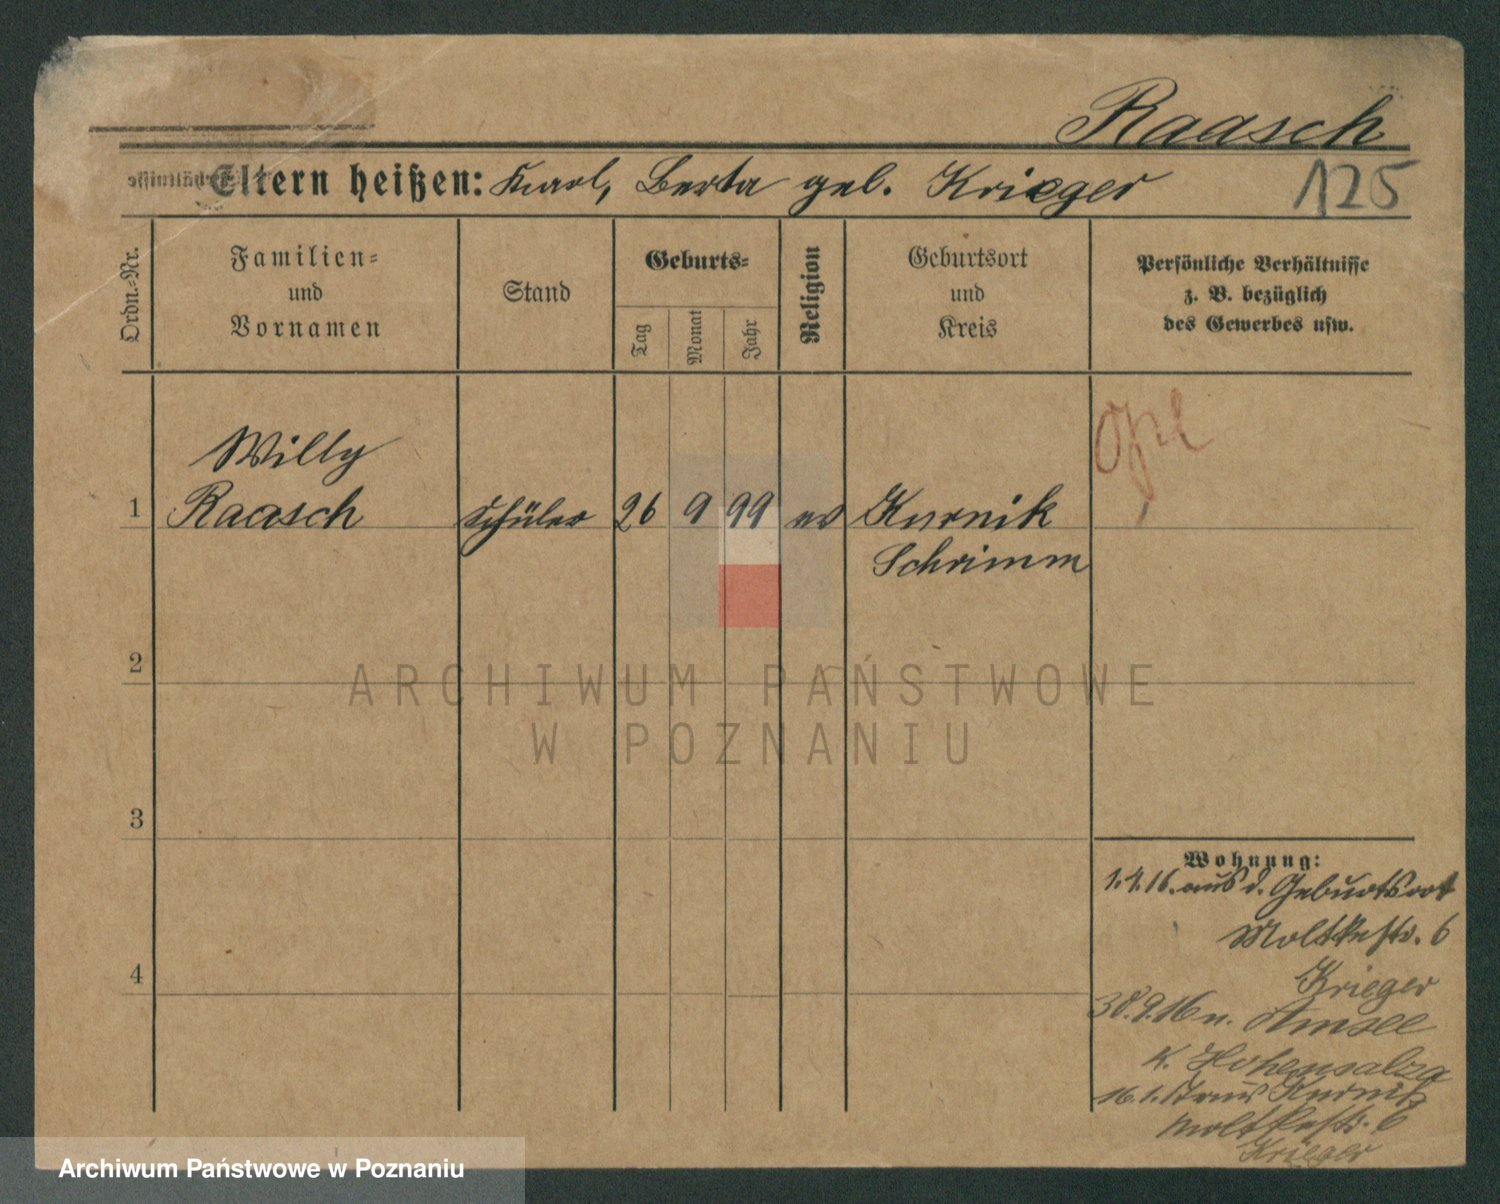 Raasch
Eltern heißen: Karl, Berta geb. Krieger
125
Ordn.-Nr.
Familien-
und
Vornamen
Stand
Geburts-
Tag
Monat
Jahr
Religion
Geburtsort
und
Kreis
Persönliche Verhältnisse
z. B. bezüglich
des Gewerbes usw.
Willy
1 Raasch Schüler 26 9 99 ev Kurnik
Schrimm
2
3
4
Wohnung:
1.4.16. aus d. Geburtsort
Moltkestr. 6
Krieger
30.9.16 n. Amsee
K. Hohensalza
16.1. aus Kurnik
Moltkestr. 6
Krieger
ARCHIWUM PAŃSTWOWE
W POZNANIU
Archiwum Państwowe w Poznaniu